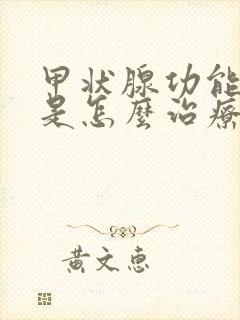 甲状腺功能
是怎麼治療
黃文惠